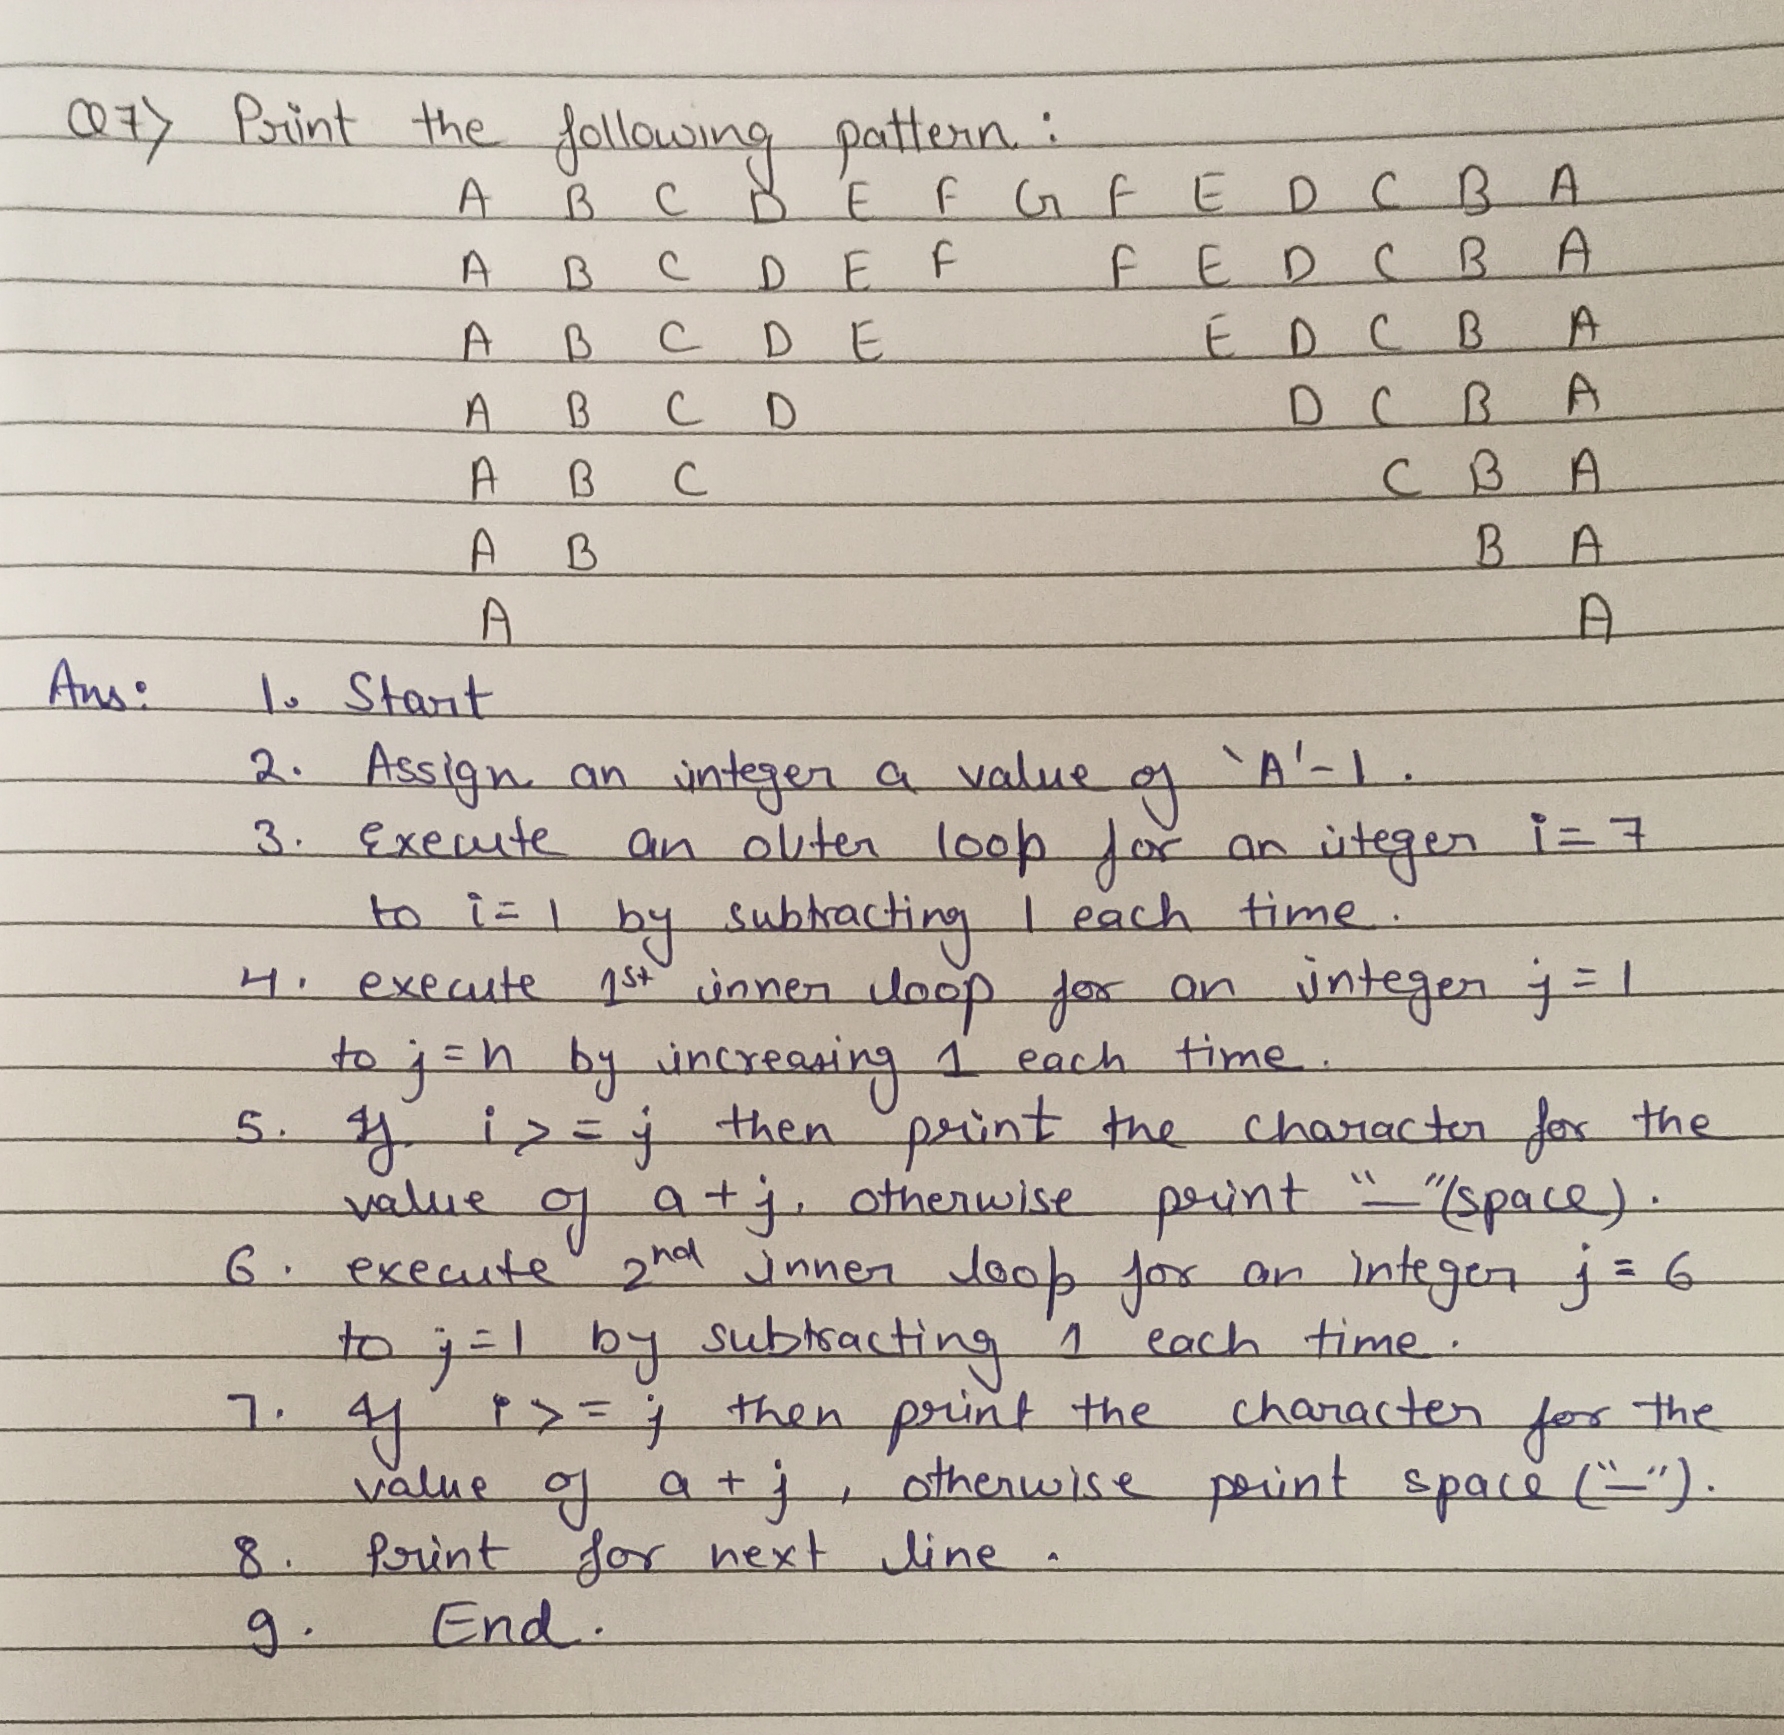 Q7> Print the following pattern :
A B C D E F G F E D C B A
A B C D E F F E D C B A
A B C D E E D C B A
A B C D D C B A
A B C C B A
A B B A
A A
Ans: 1. Start
2. Assign an integer a value of 'A'-1.
3. Execute an outer loop for an iteger i=7
to i=1 by subtracting 1 each time.
4. execute 1st inner loop for an integer j=1
to j=n by increasing 1 each time.
5. If i>=j then print the character for the
value of a+j, otherwise print "_"(space).
6. execute 2nd inner loop for an integer j=6
to j=1 by subtracting 1 each time.
7. If i>=j then print the character for the
value of a+j, otherwise print space ("_").
8. Print for next line.
9. End.